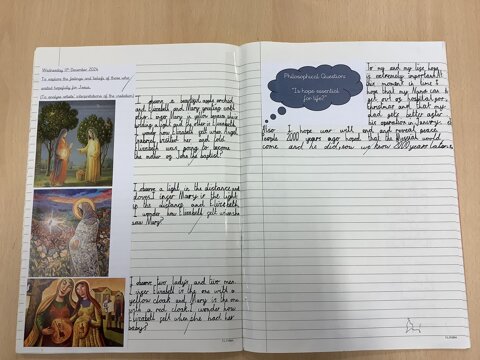 Wednesday 11th December 2024
To explore the feelings and beliefs of those who
waited hopefully for Jesus.
(To analyse artists' interpretations of the visitation)
I observe a beautiful apple orchard
and Elizabeth and Mary greeting each
other. I infer Mary is
holding a light and the other is Elizabeth.
I wonder how Elizabeth felt when Angel
Gabriel visited her and told
Elizabeth was going to become
the mother of John the baptist?
I observe a light in the distance and
flowers. I infer Mary is the light
in the distance and Elizabeth.
I wonder how Elizabeth felt when she
saw Mary?
I observe two lady's and two men.
I infer Elizabeth is the one with a
yellow cloak and Mary is the one
with a red cloak. I wonder how
Elizabeth felt when she had her
baby?
Philosophical Question:
"Is hope essential
for life?"
In my and my life hope
is extremely important. At
this moment in time I
hope that my Nana can
get out of hospital for
Christmas and that my
dad gets better after
his operation in January.
Also I hope war will end and reveal peace.
People 2000 years ago hoped that the Messiah would
come and he did, now we know 2000 years later.